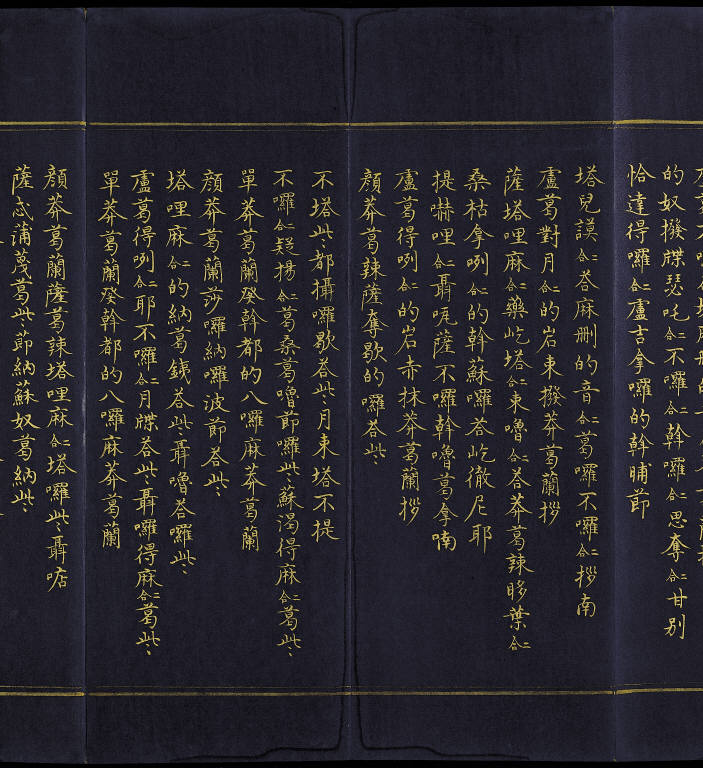 的奴撥牒瑟吒合二不囉合二幹囉合二思奪合二甘别
恰達得囉合二盧吉拿囉的幹晡節
塔兒謨合二荅麻刪的音合二葛囉不囉合二拶南
盧葛對月合二的岩東撥莽葛蘭拶
薩塔哩麻合二藥屹塔合二東嚕合二荅莽葛辣哆葉合二
桑枯拿咧合二的幹蘇囉荅屹徹尼耶
提嚇哩合二聶㖇薩不囉幹嚕葛拿喃
盧葛得咧合二的岩赤抹莽葛蘭拶
顔莽葛辣薩奪歇的囉荅些
不塔些都攝囉歇荅些月東塔不提
不囉合二疑揚合二葛桑葛嚕節囉些蘇渴得麻合二葛些
單莽葛蘭癸幹都的八囉麻莽葛蘭
顔莽葛蘭莎囉納囉波節荅些
塔哩麻合二的納葛銕荅些聶嚕荅囉些
盧葛得咧合二耶不囉合二月牒荅些聶囉得麻合二葛些
單莽葛蘭癸幹都的八囉麻莽葛蘭
顔莽葛蘭薩葛辣塔哩麻合二塔囉些聶㖔
薩忒蒲蔑葛些節納蘇奴葛納些